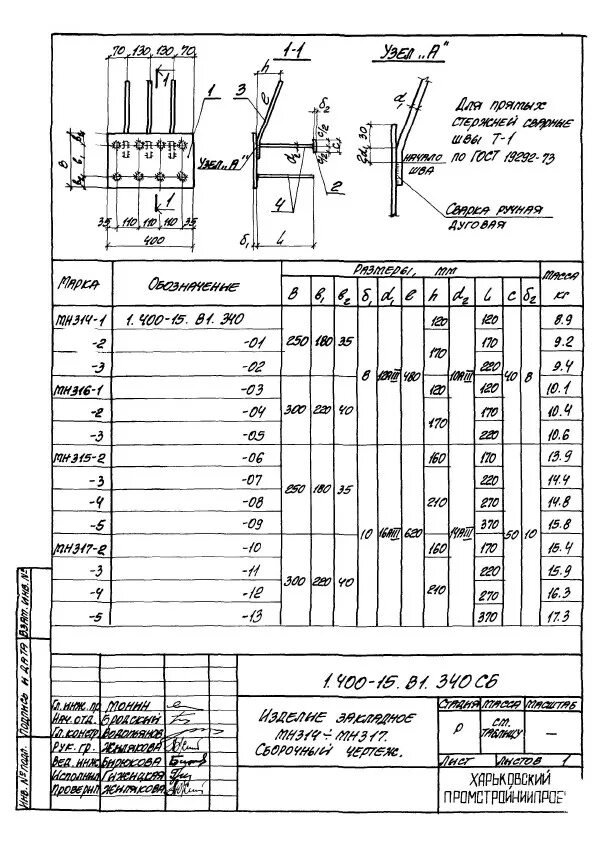 1-1
Узел „А"
70 130 130 70
1
h
3
l
δ2
1
Узел „А"
В
в2
в1
в2
d2
с/2
с/2
с
2
4
1
35 110 110 110 35
400
δ1
L
d1
30
2d1
начало
шва
Для прямых
стержней сварные
швы Т-1
по ГОСТ 19292-73
Сварка ручная
дуговая
Марка Обозначение Размеры, мм Масса
кг
В в1 в2 δ1 d1 l h d2 L с δ2
МН314-1 1.400-15. В1. 340 120 120 8.9
-2 -01 250 180 35 170 170 9.2
-3 -02 220 9.4
МН316-1 -03 8 12АIII 480 120 10АIII 120 40 8 10.1
-2 -04 300 220 40 170 170 10.4
-3 -05 220 10.6
МН315-2 -06 160 170 13.9
-3 -07 250 180 35 220 14.4
-4 -08 210 270 14.8
-5 -09 10 16АIII 620 14АIII 370 50 10 15.8
МН317-2 -10 160 170 15.4
-3 -11 300 220 40 220 15.9
-4 -12 210 270 16.3
-5 -13 370 17.3
Инв. № подл. Подпись и дата Взят. инв. №
1.400-15. В1. 340 СБ
Гл. инж. пр Монин
Нач. отд. Бродский
Гл. констр Водопьянов
Рук. гр. Жилякова
Вед. инж Бирюкова
Исполнил Гижицкая
Проверил Жилякова
Изделие закладное
МН314÷МН317.
Сборочный чертеж.
Стадия Масса Масштаб
Р см. таблицу —
Лист Листов 1
Харьковский
ПромстройНИИпрое